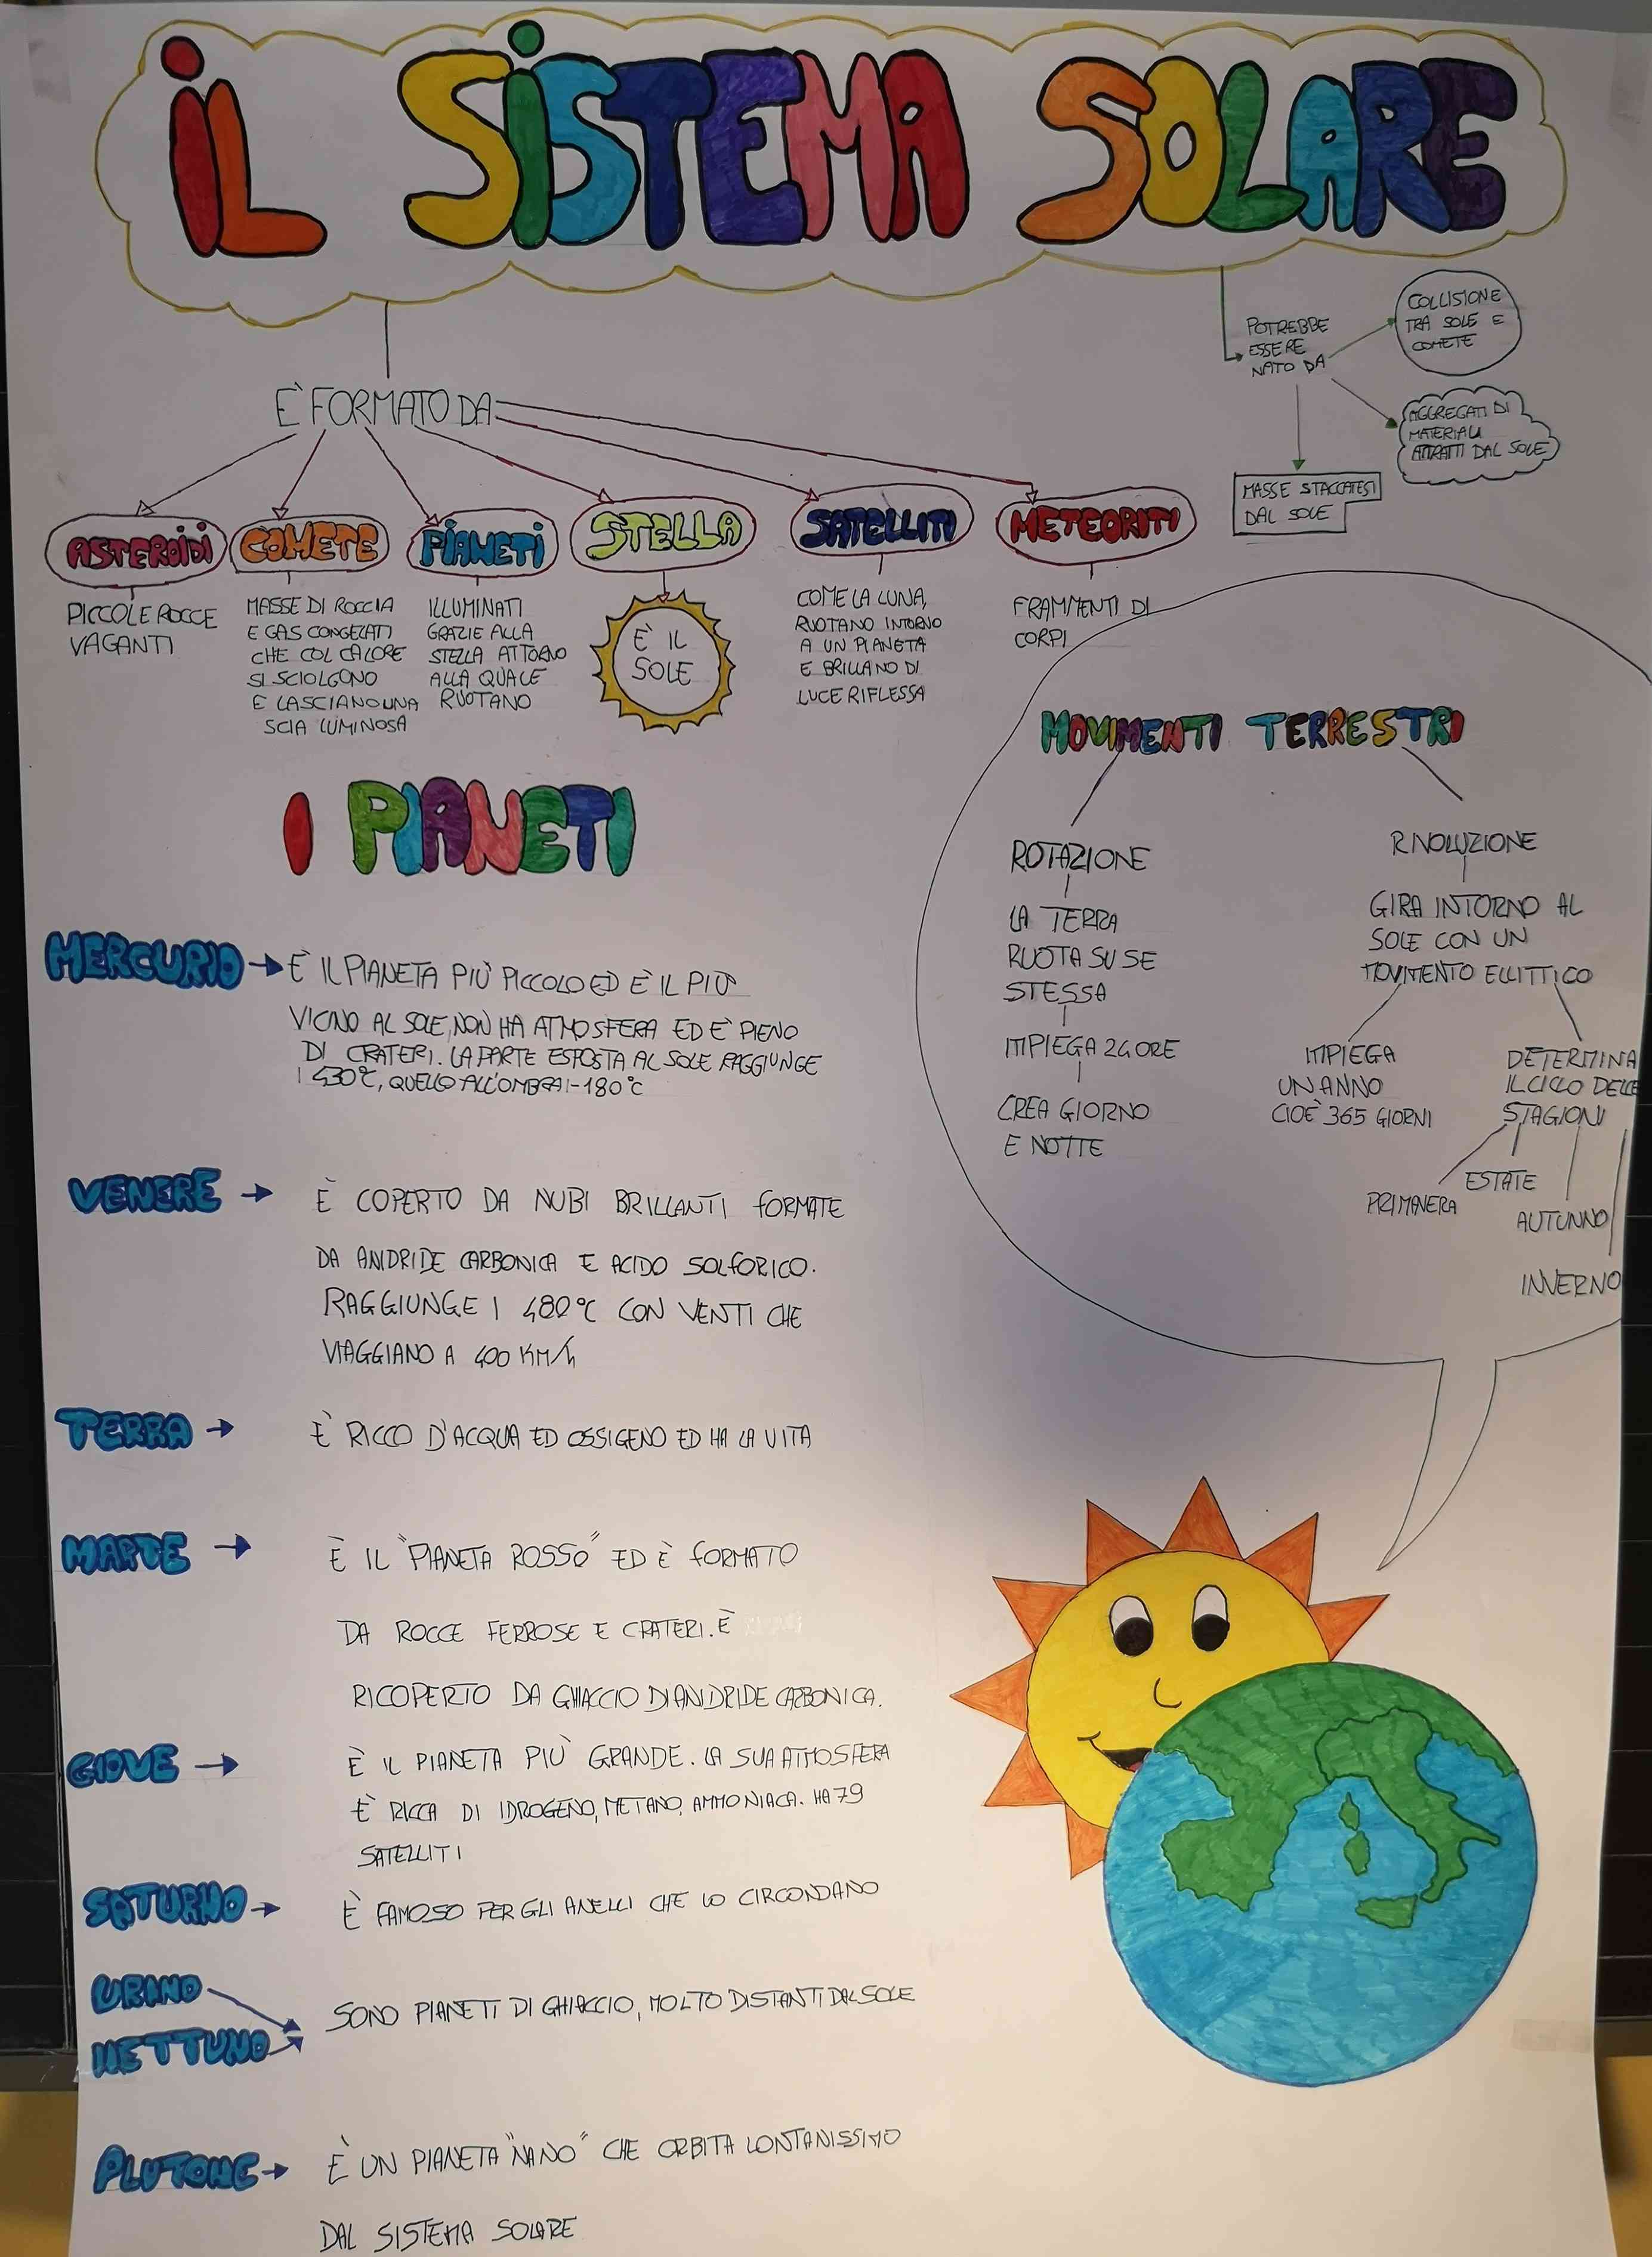 IL SISTEMA SOLARE
È FORMATO DA
ASTEROIDI
PICCOLE ROCCE
VAGANTI
COMETE
MASSE DI ROCCIA
E GAS CONGELATI
CHE COL CALORE
SI SCIOLGONO
E LASCIANO UNA
SCIA LUMINOSA
PIANETI
ILLUMINATI
GRAZIE ALLA
STELLA ATTORNO
ALLA QUALE
RUOTANO
STELLA
È IL
SOLE
SATELLITI
COME LA LUNA,
RUOTANO INTORNO
A UN PIANETA
E BRILLANO DI
LUCE RIFLESSA
METEORITI
FRAMMENTI DI
CORPI
POTREBBE
ESSERE
NATO DA
COLLISIONE
TRA SOLE E
COMETE
AGGREGATI DI
MATERIALI
ATTRATTI DAL SOLE
MASSE STACCATESI
DAL SOLE
MOVIMENTI TERRESTRI
ROTAZIONE
LA TERRA
RUOTA SU SE
STESSA
IMPIEGA 24 ORE
CREA GIORNO
E NOTTE
RIVOLUZIONE
GIRA INTORNO AL
SOLE CON UN
MOVIMENTO ELLITTICO
IMPIEGA
UN ANNO
CIOÈ 365 GIORNI
DETERMINA
IL CICLO DELLE
STAGIONI
PRIMAVERA
ESTATE
AUTUNNO
INVERNO
I PIANETI
MERCURIO
È IL PIANETA PIÙ PICCOLO ED È IL PIÙ
VICINO AL SOLE, NON HA ATMOSFERA ED È PIENO
DI CRATERI. LA PARTE ESPOSTA AL SOLE RAGGIUNGE
I 430°C, QUELLO ALL'OMBRA I -180°C
VENERE
È COPERTO DA NUBI BRILLANTI FORMATE
DA ANIDRIDE CARBONICA E ACIDO SOLFORICO.
RAGGIUNGE I 480°C CON VENTI CHE
VIAGGIANO A 400 KM/h
TERRA
È RICCO D'ACQUA ED OSSIGENO ED HA LA VITA
MARTE
È IL "PIANETA ROSSO" ED È FORMATO
DA ROCCE FERROSE E CRATERI. È
RICOPERTO DA GHIACCIO DI ANIDRIDE CARBONICA.
GIOVE
È IL PIANETA PIÙ GRANDE. LA SUA ATMOSFERA
È RICCA DI IDROGENO, METANO, AMMONIACA. HA 79
SATELLITI
SATURNO
È FAMOSO PER GLI ANELLI CHE LO CIRCONDANO
URANO
NETTUNO
SONO PIANETI DI GHIACCIO, MOLTO DISTANTI DAL SOLE
PLUTONE
È UN PIANETA "NANO" CHE ORBITA LONTANISSIMO
DAL SISTEMA SOLARE